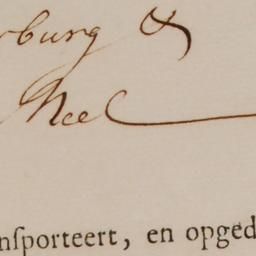 rburg &
Neel
nſporteert, en opged